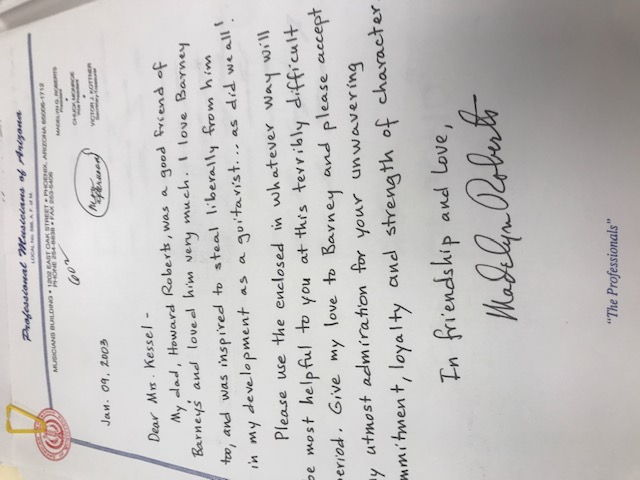 Professional Musicians of Arizona
LOCAL No. 586, A. F. of M.
MUSICIANS BUILDING • 1202 EAST OAK STREET • PHOENIX, ARIZONA 85006-1712
PHONE 254-8838 • FAX 253-5405
MADELYN G. ROBERTS
President
CHUCK MONROE
Vice President
VICTOR J. KOTTNER
Secretary-Treasurer
Jan. 09. 2003
Dear Mrs. Kessel -
My dad, Howard Roberts, was a good friend of
Barney's and loved him very much. I love Barney
too, and was inspired to steal liberally from him
in my development as a guitarist... as did we all!
Please use the enclosed in whatever way will
be most helpful to you at this terribly difficult
period. Give my love to Barney and please accept
y utmost admiration for your unwavering
mmitment, loyalty and strength of character.
In friendship and Love,
Madelyn Roberts
"The Professionals"